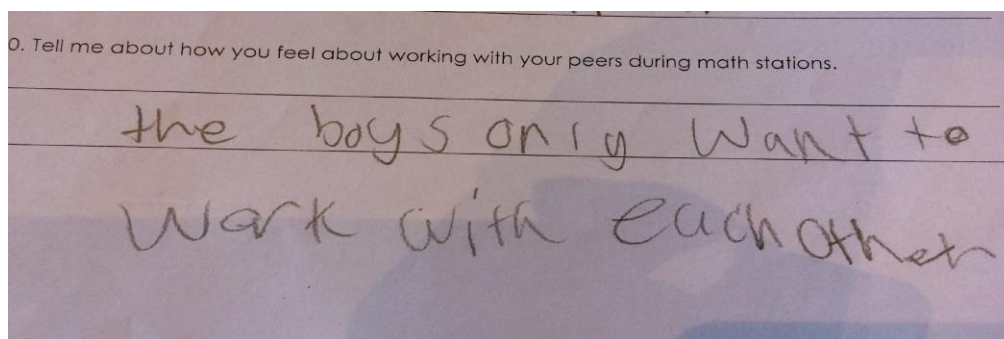 0. Tell me about how you feel about working with your peers during math stations.
the boys only want to
work with each other